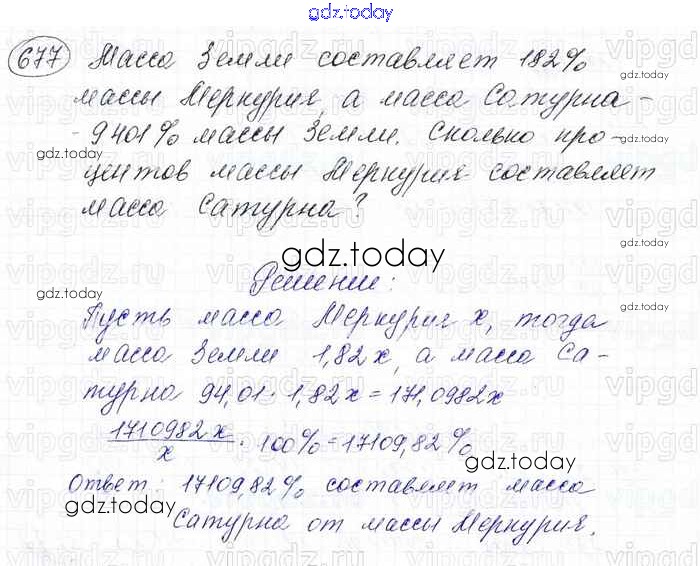 gdz.today
677 Масса Земли составляет 182%
массы Меркурия, а масса Сатурна -
- 9401% массы Земли. Сколько про-
gdz.today
центов массы Меркурия составляет
масса Сатурна?
gdz.today
Решение:
Пусть масса Меркурия x, тогда
масса Земли 1,82x, а масса Са-
турна 94,01 · 1,82x = 171,0982x
1710982x/x · 100% = 17109,82%
Ответ: 17109,82% составляет масса
Сатурна от массы Меркурия.
gdz.today
gdz.today
gdz.today
gdz.today
gdz.today
gdz.today